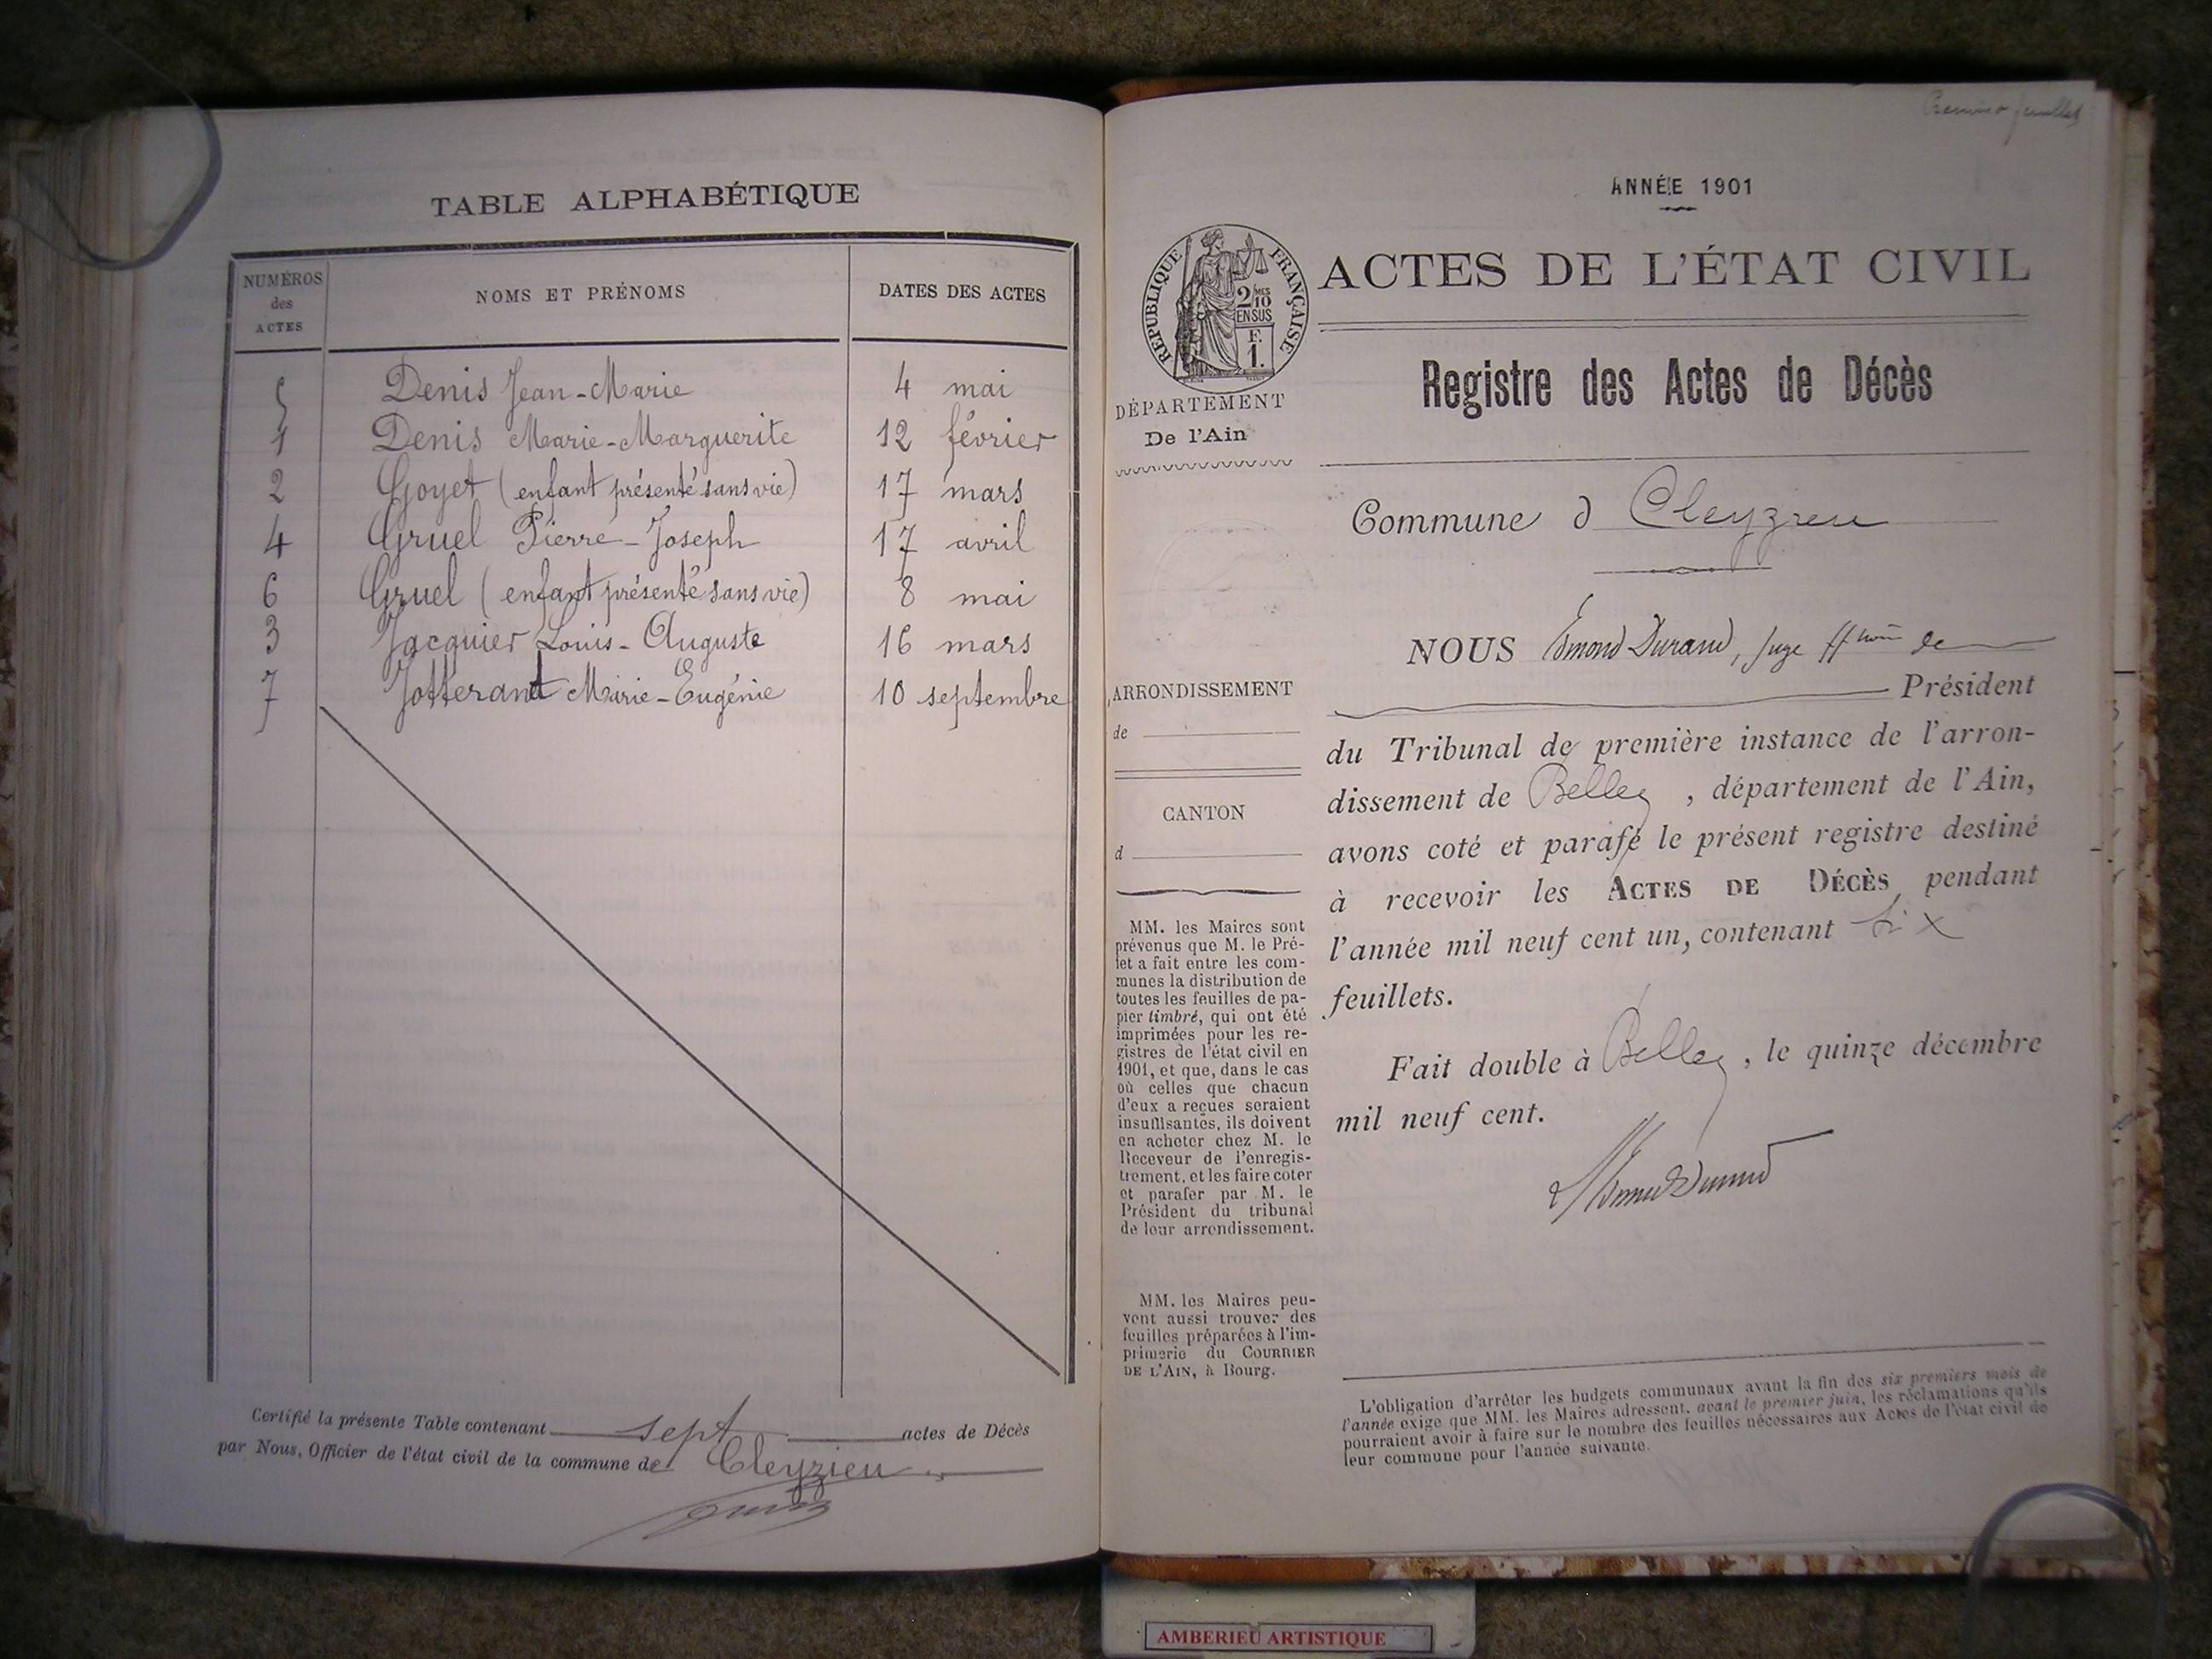 TABLE ALPHABÉTIQUE
NUMÉROS des ACTES
NOMS ET PRÉNOMS
DATES DES ACTES
5 Denis Jean-Marie 4 mai
1 Denis Marie-Marguerite 12 février
2 Goyet (enfant présenté sans vie) 17 mars
4 Gruel Pierre-Joseph 17 avril
6 Gruel (enfant présenté sans vie) 8 mai
3 Jacquier Louis-Auguste 16 mars
7 Jotterand Marie-Eugénie 10 septembre
Certifié la présente Table contenant sept actes de Décès
par Nous, Officier de l'état civil de la commune de Cleyzieu
ANNÉE 1901
RÉPUBLIQUE FRANÇAISE
2/10 MES
EN SUS
F.
1.
ACTES DE L'ÉTAT CIVIL
DÉPARTEMENT
De l'Ain
Registre des Actes de Décès
Commune d Cleyzieu
ARRONDISSEMENT
de
CANTON
d
MM. les Maires sont
prévenus que M. le Pré-
fet a fait entre les com-
munes la distribution de
toutes les feuilles de pa-
pier timbré, qui ont été
imprimées pour les re-
gistres de l'état civil en
1901, et que, dans le cas
où celles que chacun
d'eux a reçues seraient
insuffisantes, ils doivent
en acheter chez M. le
Receveur de l'enregis-
trement, et les faire coter
et parafer par M. le
Président du tribunal
de leur arrondissement.
MM. les Maires peu-
vent aussi trouver des
feuilles préparées à l'im-
primerie du COURRIER
DE L'AIN, à Bourg.
NOUS Edmond Durand, Juge de
Président
du Tribunal de première instance de l'arron-
dissement de Belley, département de l'Ain,
avons coté et parafé le présent registre destiné
à recevoir les ACTES DE DÉCÈS pendant
l'année mil neuf cent un, contenant six
feuillets.
Fait double à Belley, le quinze décembre
mil neuf cent.
L'obligation d'arrêter les budgets communaux avant la fin des six premiers mois de
l'année exige que MM. les Maires adressent, avant le premier juin, les réclamations qu'ils
pourraient avoir à faire sur le nombre des feuilles nécessaires aux Actes de l'état civil de
leur commune pour l'année suivante.
AMBERIEU ARTISTIQUE